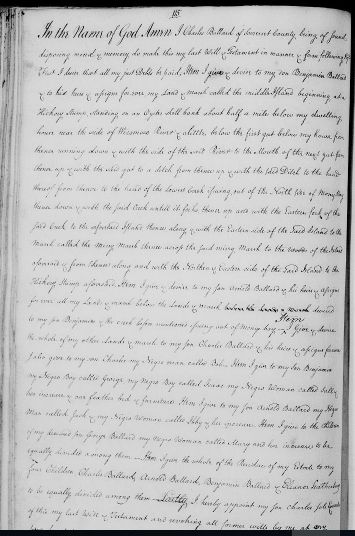 115
In the Name of God Amen I Charles Ballard of Somerset County being of sound
disposing mind & memory do make this my last Will & Testament in manner & form following
First I desire that all my just Debts be paid. Item I give & devise to my son Benjamin Ballard
& to his heirs & assigns forever my Land & marsh called the middle Island beginning at a
Hickory Stump standing on an Oyster shell bank about half a mile below my dwelling
house near the side of River & a little below the first gut below my house from
thence running down & with the side of the said River to the Mouth of the next gut from
thence up & with the said gut to a ditch from thence up & with the said Ditch to the head
thereof from thence to the head of the lower Creek issuing out of the North side of Money Bay
thence down & with the said Creek untill it forks thence up and with the Eastern fork of the
said Creek to the aforesaid Island thence along & with the Eastern side of the said Island to the
Marsh called the Marsh thence across the said Marsh to the woods of the Island
aforesaid & from thence along and with the Northern & Eastern side of the said Island to the
Hickory Stump aforesaid. Item I give & devise to my son Arnold Ballard & his heirs & assigns
forever all my Land & marsh below the Lands & marsh devised
to my son Benjamin & the creek before mentioned issuing out of Money bay Item I Give & devise
the whole of my other Lands & marsh to my son Charles Ballard & his heirs & assigns forever
I also give to my son Charles my Negro man called Bob. Item I give to my son Benjamin
my Negro Boy called George my Negro Boy called Isaac my Negro Woman called
her increase & one feather bed & furniture. Item I give to my son Arnold Ballard my Negro
Man called Jack & my Negro Woman called & her increase. Item I give to the children
of my deceased son George Ballard my Negro Woman called Mary and her increase to be
equally divided among them. Item I give the whole of the Residue of my Estate to my
four Children Charles Ballard, Arnold Ballard, Benjamin Ballard & Eleanor
to be equally divided among them. Lastly, I hereby appoint my son Charles sole
of this my last Will & Testament and revoking all former wills by me at any